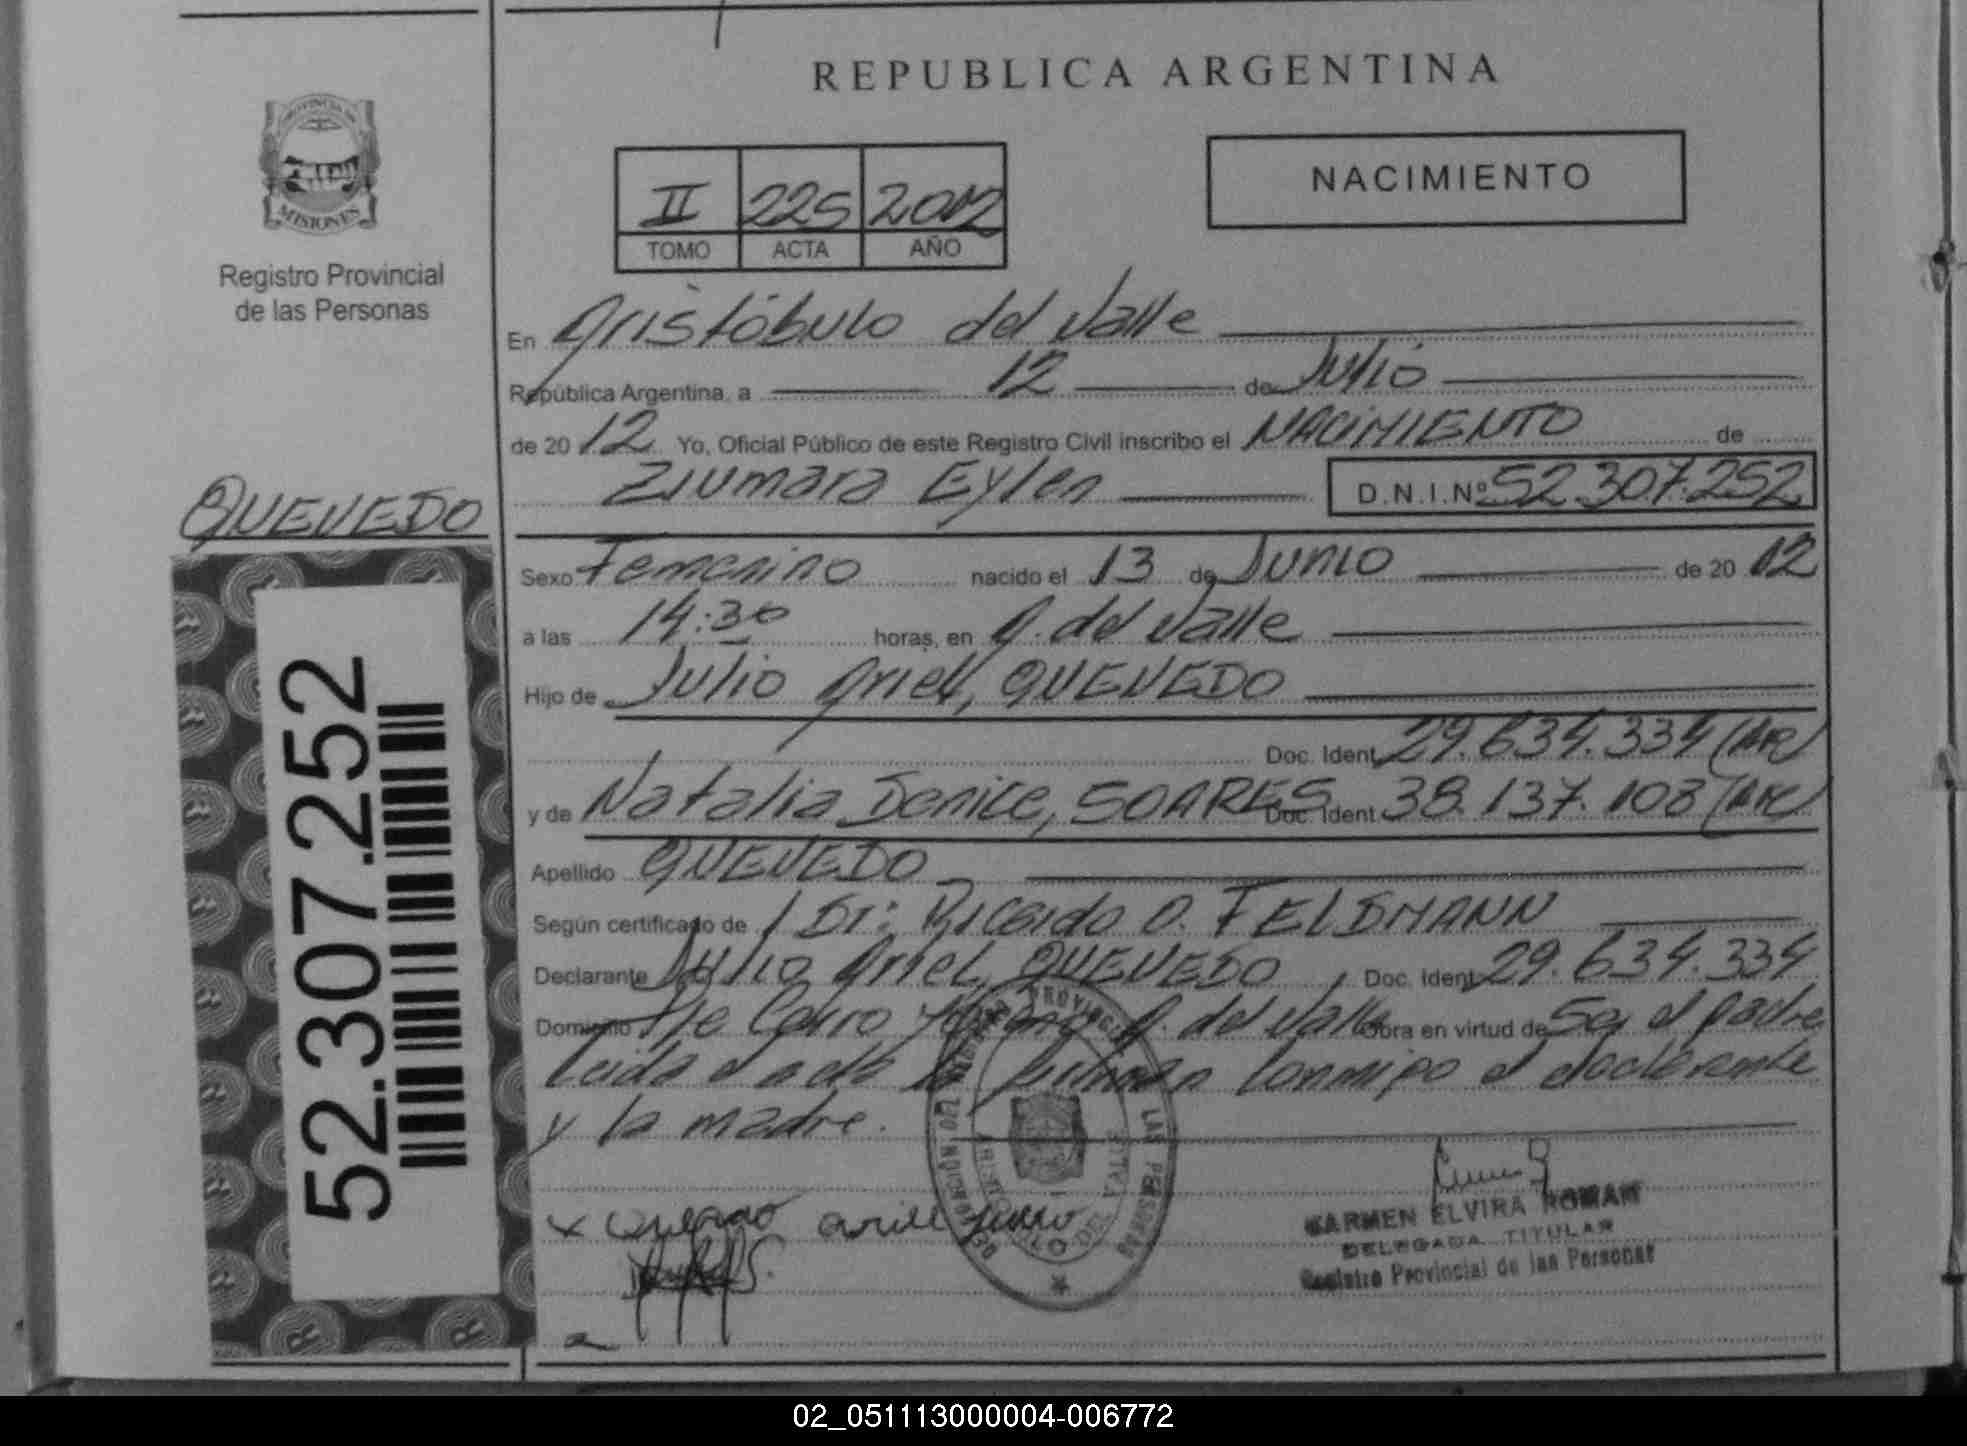 REPUBLICA ARGENTINA
PROVINCIA DE
MISIONES
Registro Provincial
de las Personas
II 225 2012
TOMO ACTA AÑO
NACIMIENTO
En Aristóbulo del Valle
República Argentina, a 12 de Julio
de 2012 Yo, Oficial Público de este Registro Civil inscribo el NACIMIENTO de
Ziumara Eylen D.N.I.Nº 52.307.252
QUEVEDO
52.307.252
Sexo Femenino nacido el 13 de Junio de 2012
a las 14:30 horas, en A. del Valle
Hijo de Julio Ariel, QUEVEDO
Doc. Ident. 29.634.334 (Arg)
y de Natalia Denice, SOARES Doc. Ident. 38.137.108 (Arg)
Apellido QUEVEDO
Según certificado de / Dr: Ricardo O. FELDMANN
Declarante Julio Ariel, QUEVEDO Doc. Ident. 29.634.334
Domicilio A. del Valle Obra en virtud de Ser el padre
Leida el acta la firman conmigo el declarante
y la madre.
x Quevedo ariel julio
CARMEN ELVIRA ROMAN
DELEGADA TITULAR
Registro Provincial de las Personas
02_051113000004-006772